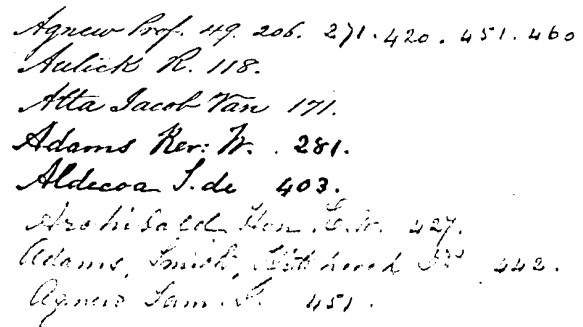 Agnew Prof. 49. 206. 271. 420. 451. 460
Aulick R. 118.
Atta Jacob Van 171.
Adams Rev: W. . 281.
Aldecoa S. de 403.
Archibald Hon. E. M. 427.
Adams, Smith, 442.
Agnew Sam. 451.